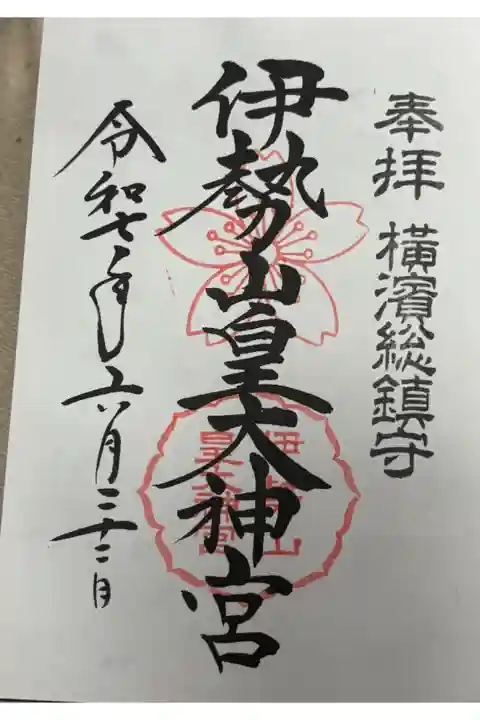 奉拝 横濱総鎮守
伊勢山皇大神宮
伊勢山
皇大神宮
令和七年六月二十二日